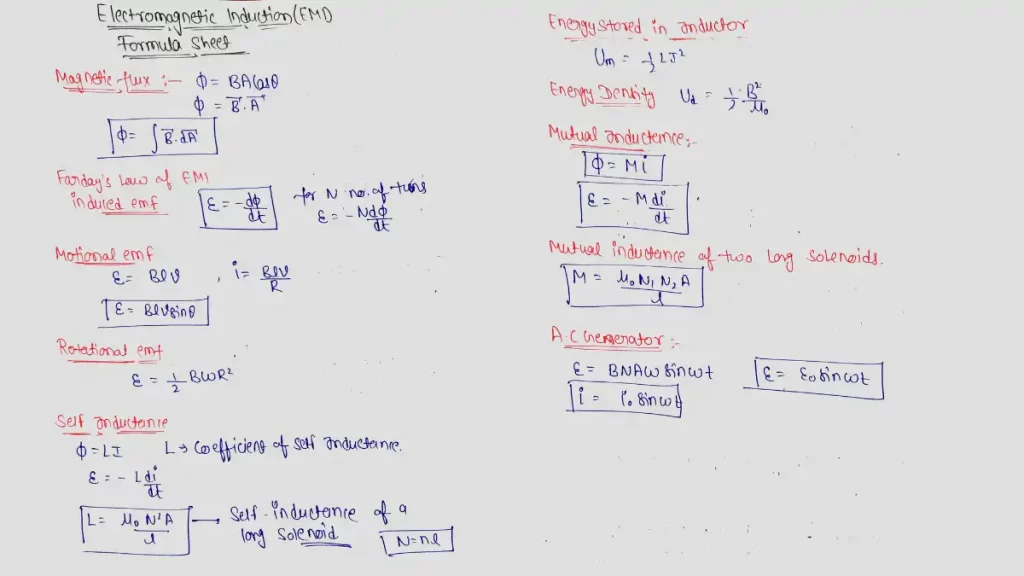 Electromagnetic Induction (EMI)
Formula Sheet
Magnetic flux :- ϕ = BA Cosθ
ϕ = B⃗.A⃗
ϕ = ∫B⃗.dA⃗
Farday's Law of EMI
induced emf ε = -dϕ/dt for N no. of turns
ε = -Ndϕ/dt
Motional emf
ε = Blv , i = Blv/R
ε = Blv sinθ
Rotational emf
ε = 1/2 BωR²
Self Inductance
ϕ = LI L → Coefficient of Self Inductance.
ε = - L di/dt
L = μ₀ N²A/l → Self-inductance of a
long Solenoid N = nl
Energy stored in Inductor
Um = 1/2 LI²
Energy Density Ud = 1/2 . B²/μ₀
Mutual Inductance :-
ϕ = Mi
ε = - M di/dt
Mutual inductance of two long solenoids.
M = μ₀ N₁ N₂ A/l
A.C Generator :-
ε = BNAω sinωt ε = ε₀ sinωt
i = i₀ sinωt